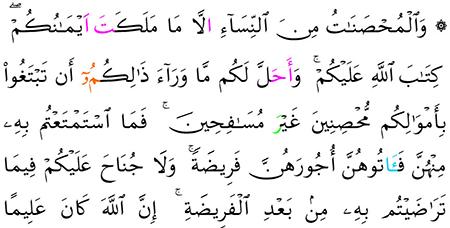 ۞ وَٱلْمُحْصَنَـٰتُ مِنَ ٱلنِّسَآءِ الَّا مَا مَلَكَتَ اَيْمَـٰنُكُمْ ۖ
كِتَـٰبَ ٱللَّهِ عَلَيْكُمْ ۚ وَأَحَلَّ لَكُم مَّا وَرَآءَ ذَٰلِكُمُۥٓ أَن تَبْتَغُوا۟
بِأَمْوَٰلِكُم مُّحْصِنِينَ غَيْرَ مُسَـٰفِحِينَ ۚ فَمَا ٱسْتَمْتَعْتُم بِهِۦ
مِنْهُنَّ فَـَٔاتُوهُنَّ أُجُورَهُنَّ فَرِيضَةً ۚ وَلَا جُنَاحَ عَلَيْكُمْ فِيمَا
تَرَٰضَيْتُم بِهِۦ مِنۢ بَعْدِ ٱلْفَرِيضَةِ ۚ إِنَّ ٱللَّهَ كَانَ عَلِيمًا